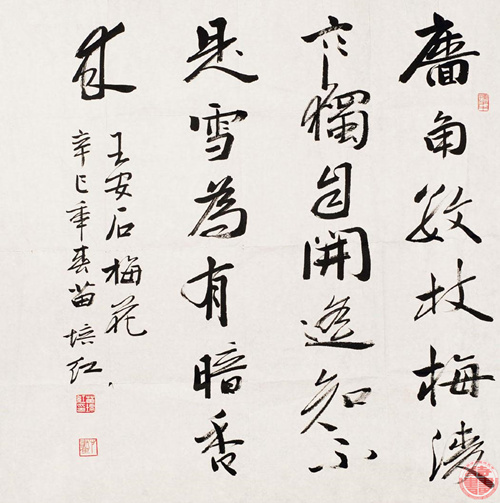 牆角数枝梅凌
寒獨自開遙知不
是雪為有暗香
来
王安石梅花
辛巳年春苗培红